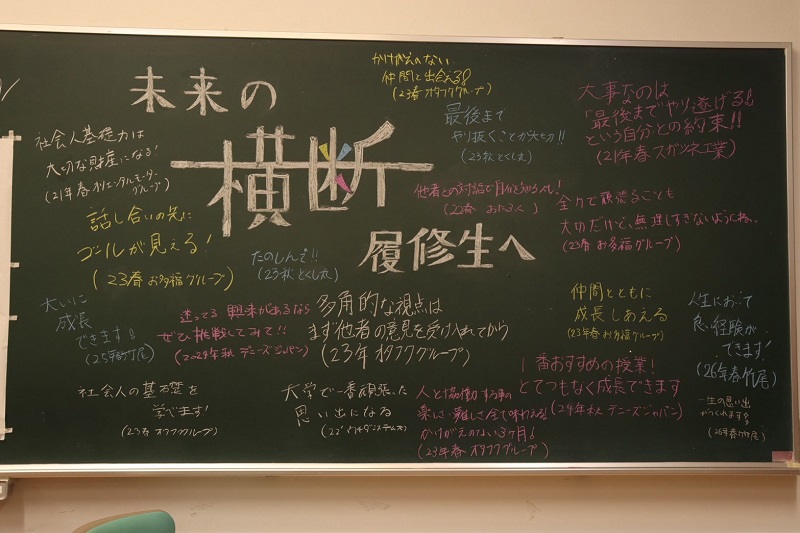 未来の
横断
履修生へ
かけがえのない
仲間と出会える!
(23春 オタフクグループ)
最後まで
やり抜くことが大切!!
(23秋 とくし丸)
大事なのは
「最後までやり遂げる」
という自分との約束!!
(21年春 スガツネ工業)
社会人基礎力は
大切な財産になる!
(21年春 オリエンタルモーター
グループ)
他者との対話で自分を知るべし!
(22春 おたふく)
全力で頑張ることも
大切だけど、無理しすぎないようにね。
(23春 お多福グループ)
話し合いの先に
ゴールが見える!
(23春 お多福グループ)
たのしんで!!
(23秋 とくし丸)
大いに
成長
できます!
(25年 竹尾)
迷ってる 興味があるなら
ぜひ挑戦してみて!!
(2024年秋 デニーズジャパン)
多角的な視点は
まず他者の意見を受け入れてから
(23年 オタフクグループ)
仲間とともに
成長しあえる
(23年春 お多福グループ)
人生において
良い経験が
できます!
(26年春 竹尾)
社会人の基礎を
学べます!
(23春 オタフクグループ)
大学で一番頑張った
思い出になる
人と協働する事の
楽しさ難しさ全て味わえる!
かけがえのない3ヶ月!
(23年春 オタフクグループ)
1番おすすめの授業!
とてつもなく成長できます
(24年秋 デニーズジャパン)
一生の思い出
がつくれます
(26年春 竹尾)